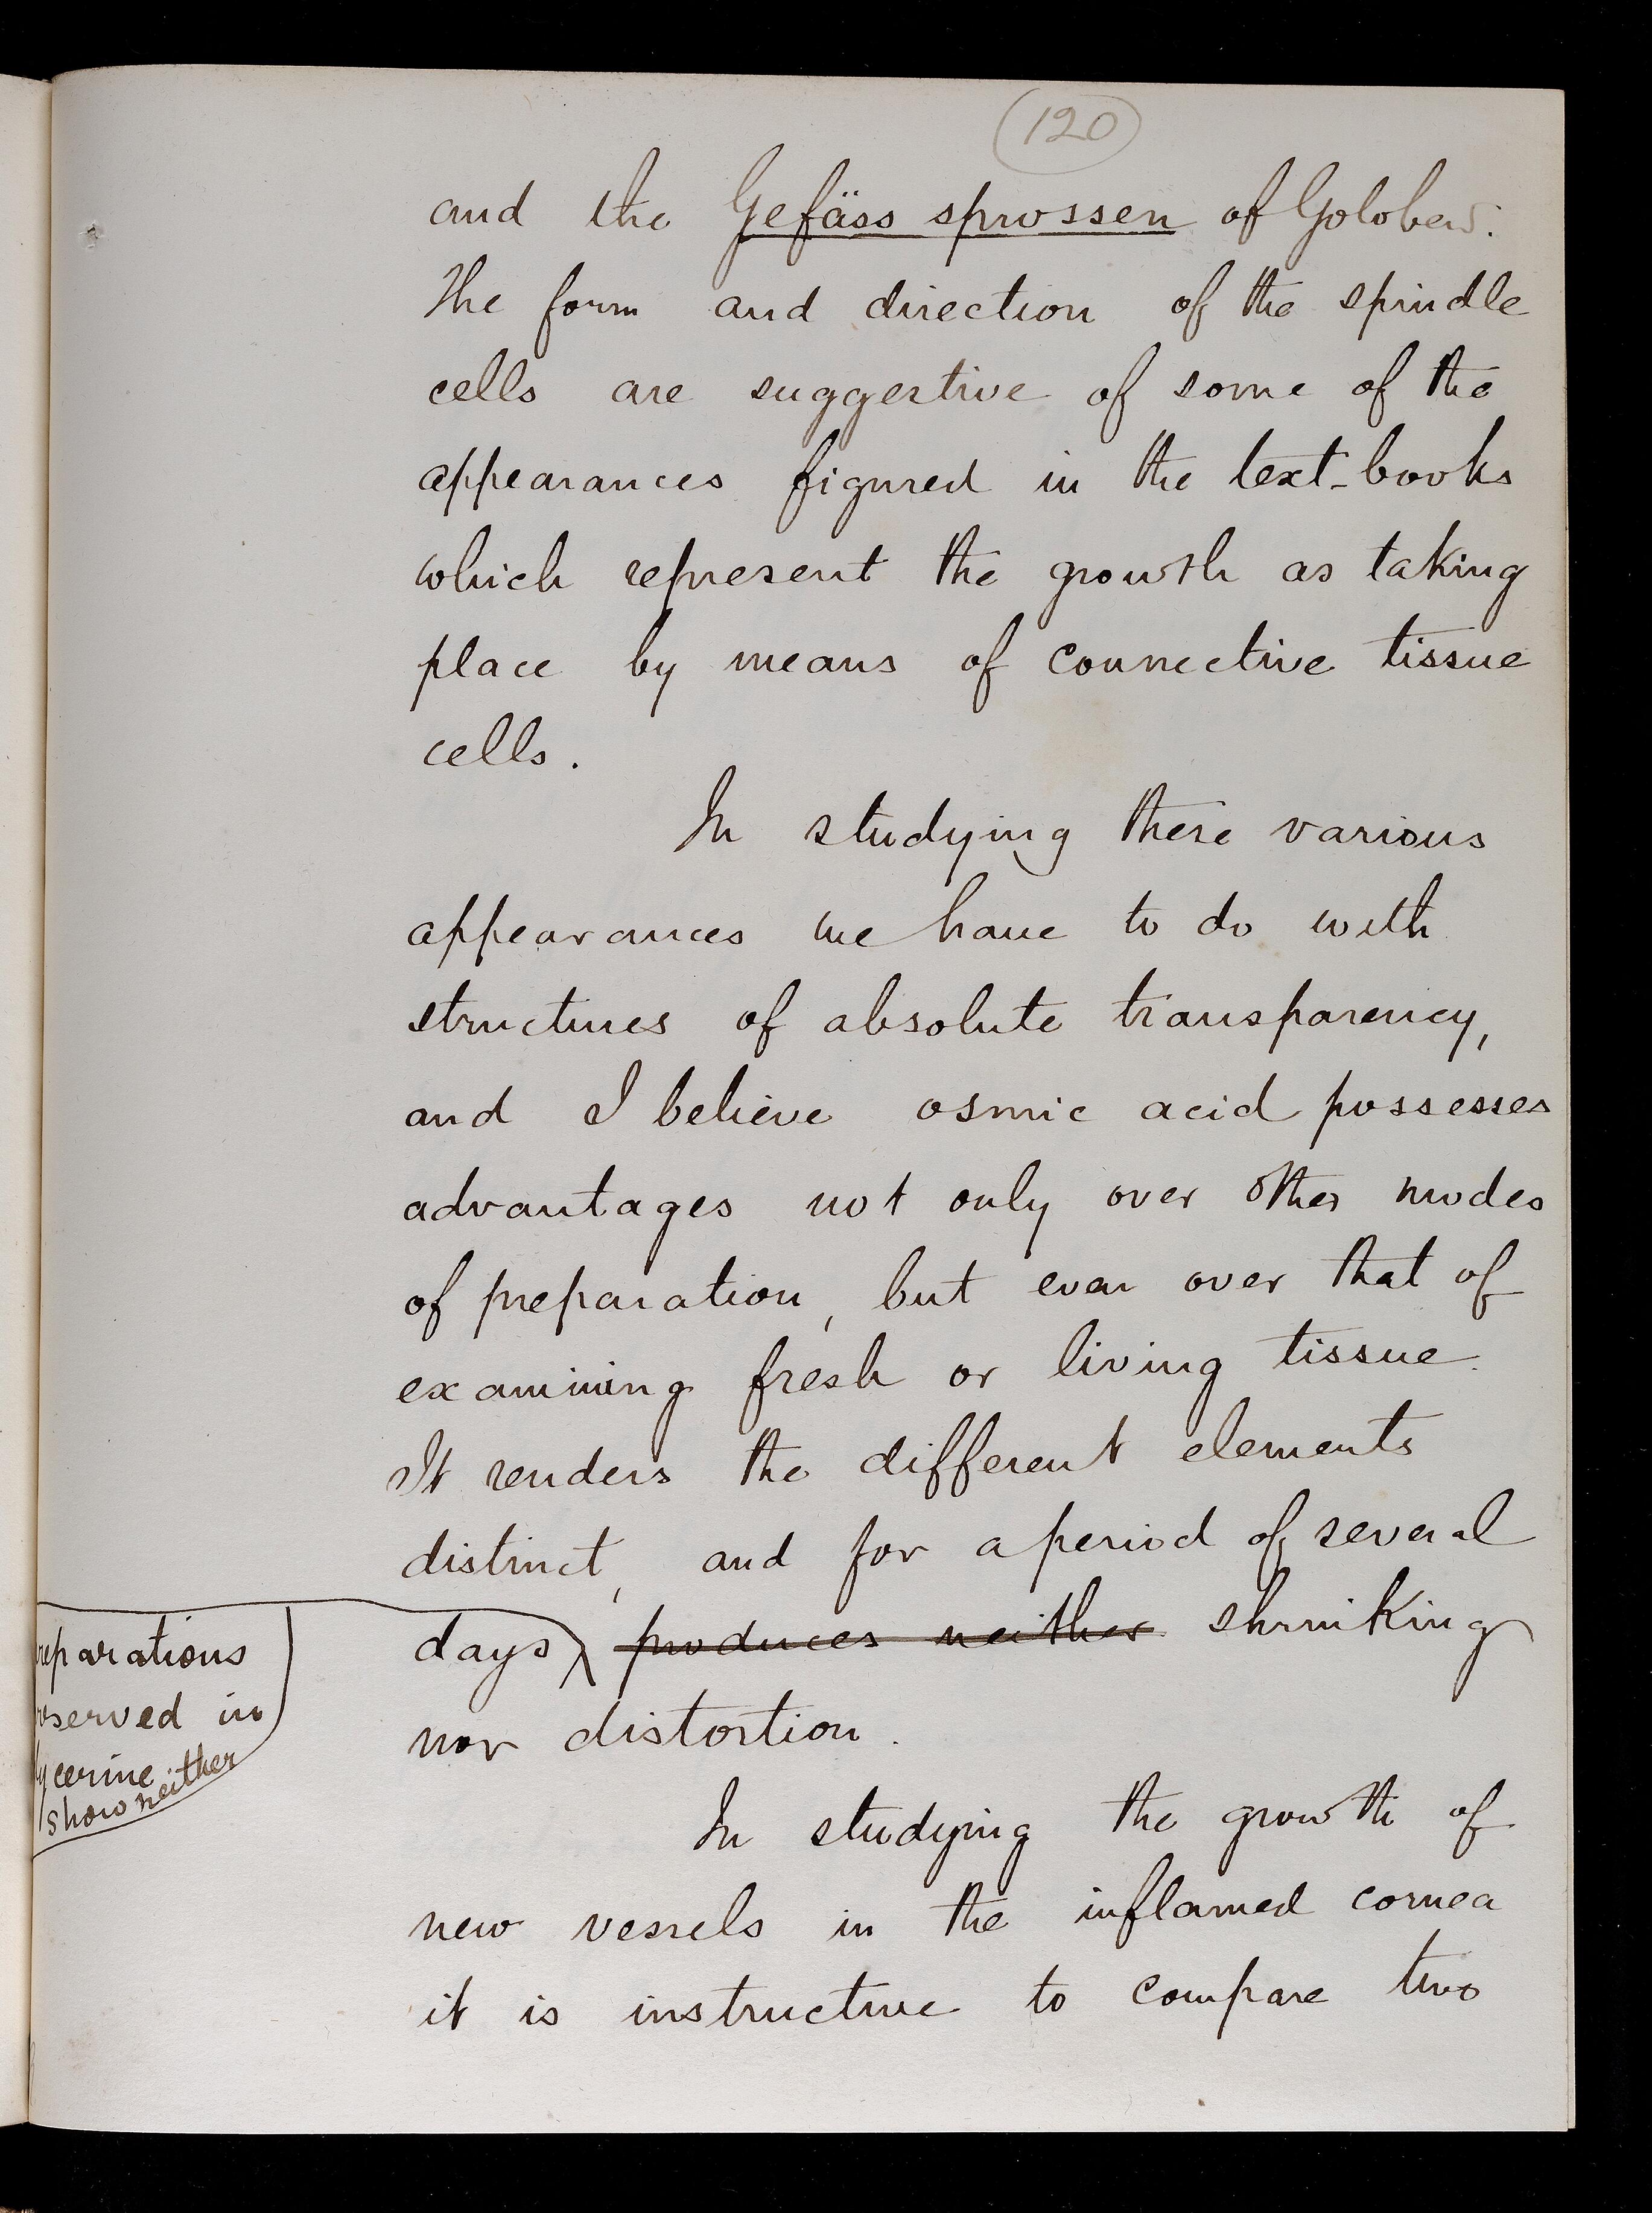 120
and the Gefäss sprossen of Golobew.
The form and direction of the spindle
cells are suggestive of some of the
appearances figured in the text-books
which represent the growth as taking
place by means of connective tissue
cells.
In studying these various
appearances we have to do with
structures of absolute transparency,
and I believe osmic acid possesses
advantages not only over other modes
of preparation, but even over that of
examining fresh or living tissue.
It renders the different elements
distinct, and for a period of several
days produces neither shrinking
reparations
served in
ycerine
show neither
nor distortion.
In studying the growth of
new vessels in the inflamed cornea
it is instructive to compare two